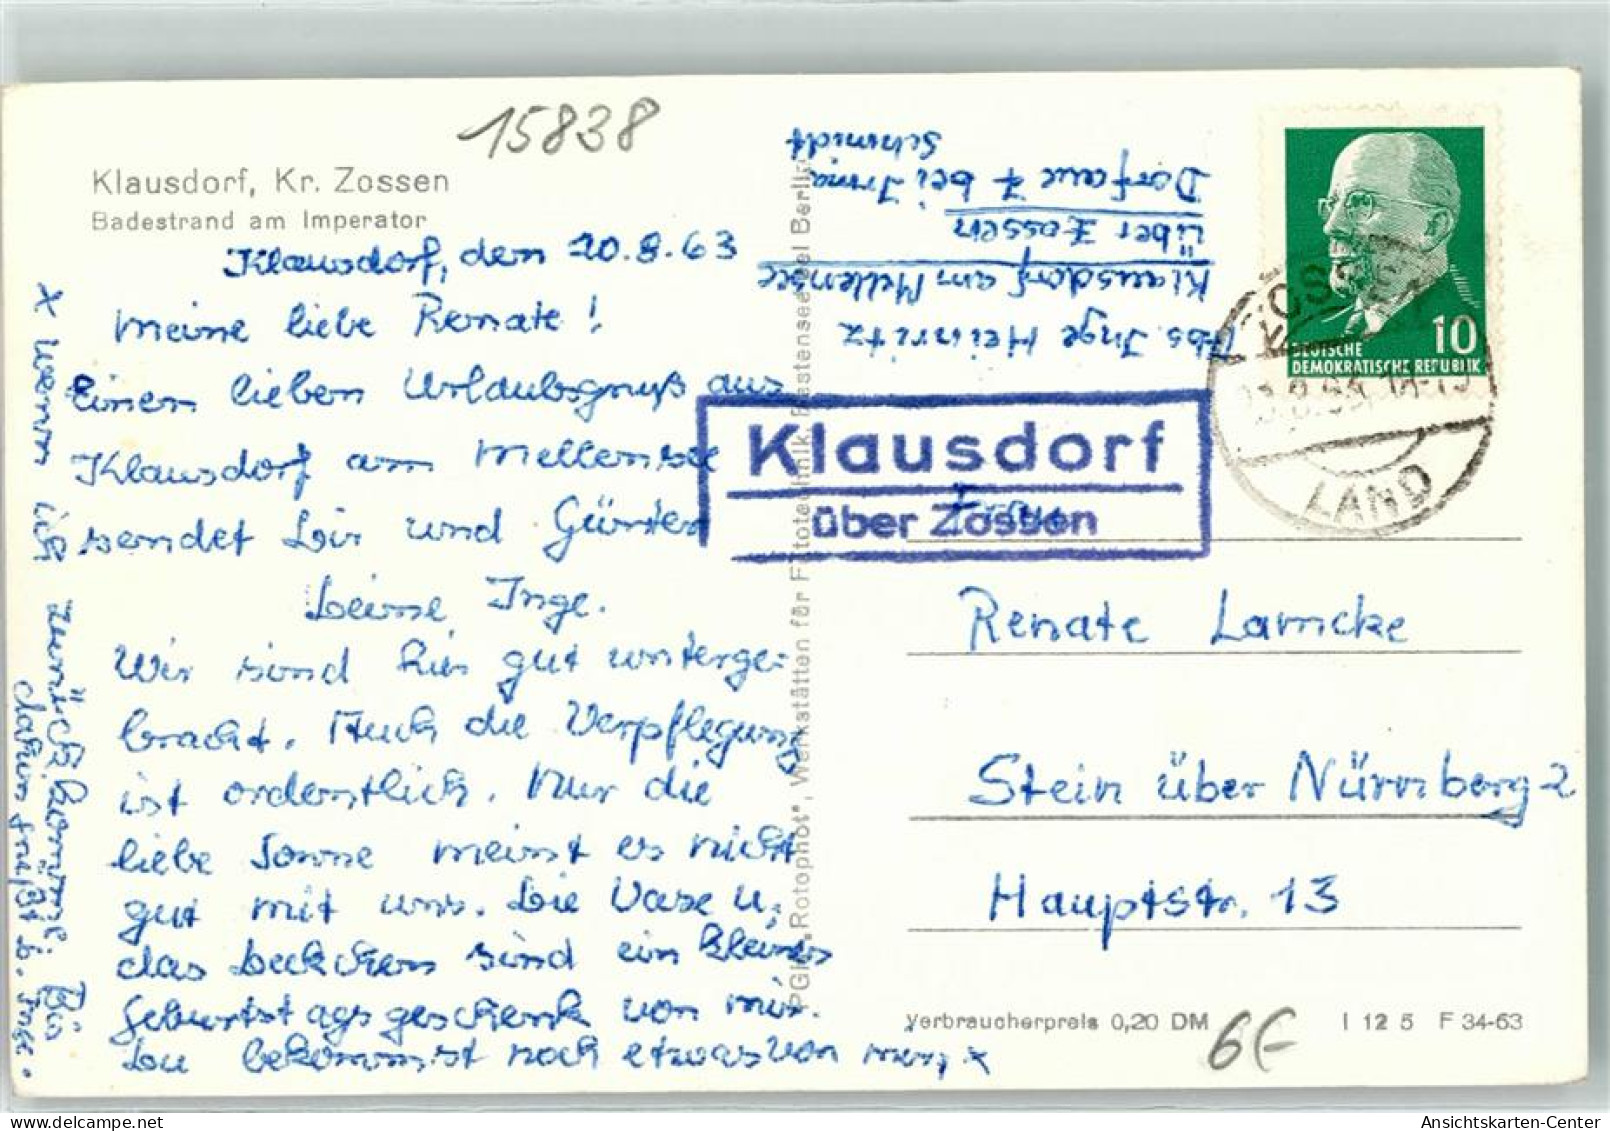 15838
Klausdorf, Kr. Zossen
Badestrand am Imperator
Klausdorf, den 20.8.63
Meine liebe Renate!
Einen lieben Urlaubsgruß aus
Klausdorf am Mellensee
sendet Dir und Günter
Deine Inge.
Wir sind hier gut unterge-
bracht. Auch die Verpflegung
ist ordentlich. Nur die
liebe Sonne meint es nicht
gut mit uns. Die Vase u.
das Deckchen sind ein kleines
Geburtstagsgeschenk von mir.
Du bekommst noch etwas von mir, x
x wenn ich zurückkomme. Bis
dahin grüßt D. Inge.
Abs. Inge Heinritz
Klausdorf am Mellensee
über Zossen
Dorfaue 7 bei Irma
Schmidt
PGH "Rotophot", Werkstätten für Fototechnik, Bestensee
Berlin
DEUTSCHE
DEMOKRATISCHE REPUBLIK
10
ZOSSEN
LAND
Klausdorf
über Zossen
Renate Lamcke
Stein über Nürnberg 2
Hauptstr. 13
Verbraucherpreis 0,20 DM
I 12 5 F 34-63
6€
Ansichtskarten-Center